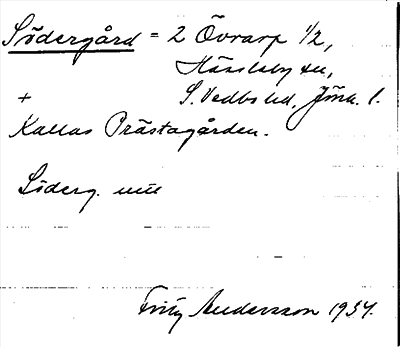 Södergård = 2 Övrarp 1/2,
Hässleby sn,
+ S. Vedbo hd, Jönk. l.
Kallas Prästagården.
Söderg.
Fritz Andersson 1934.